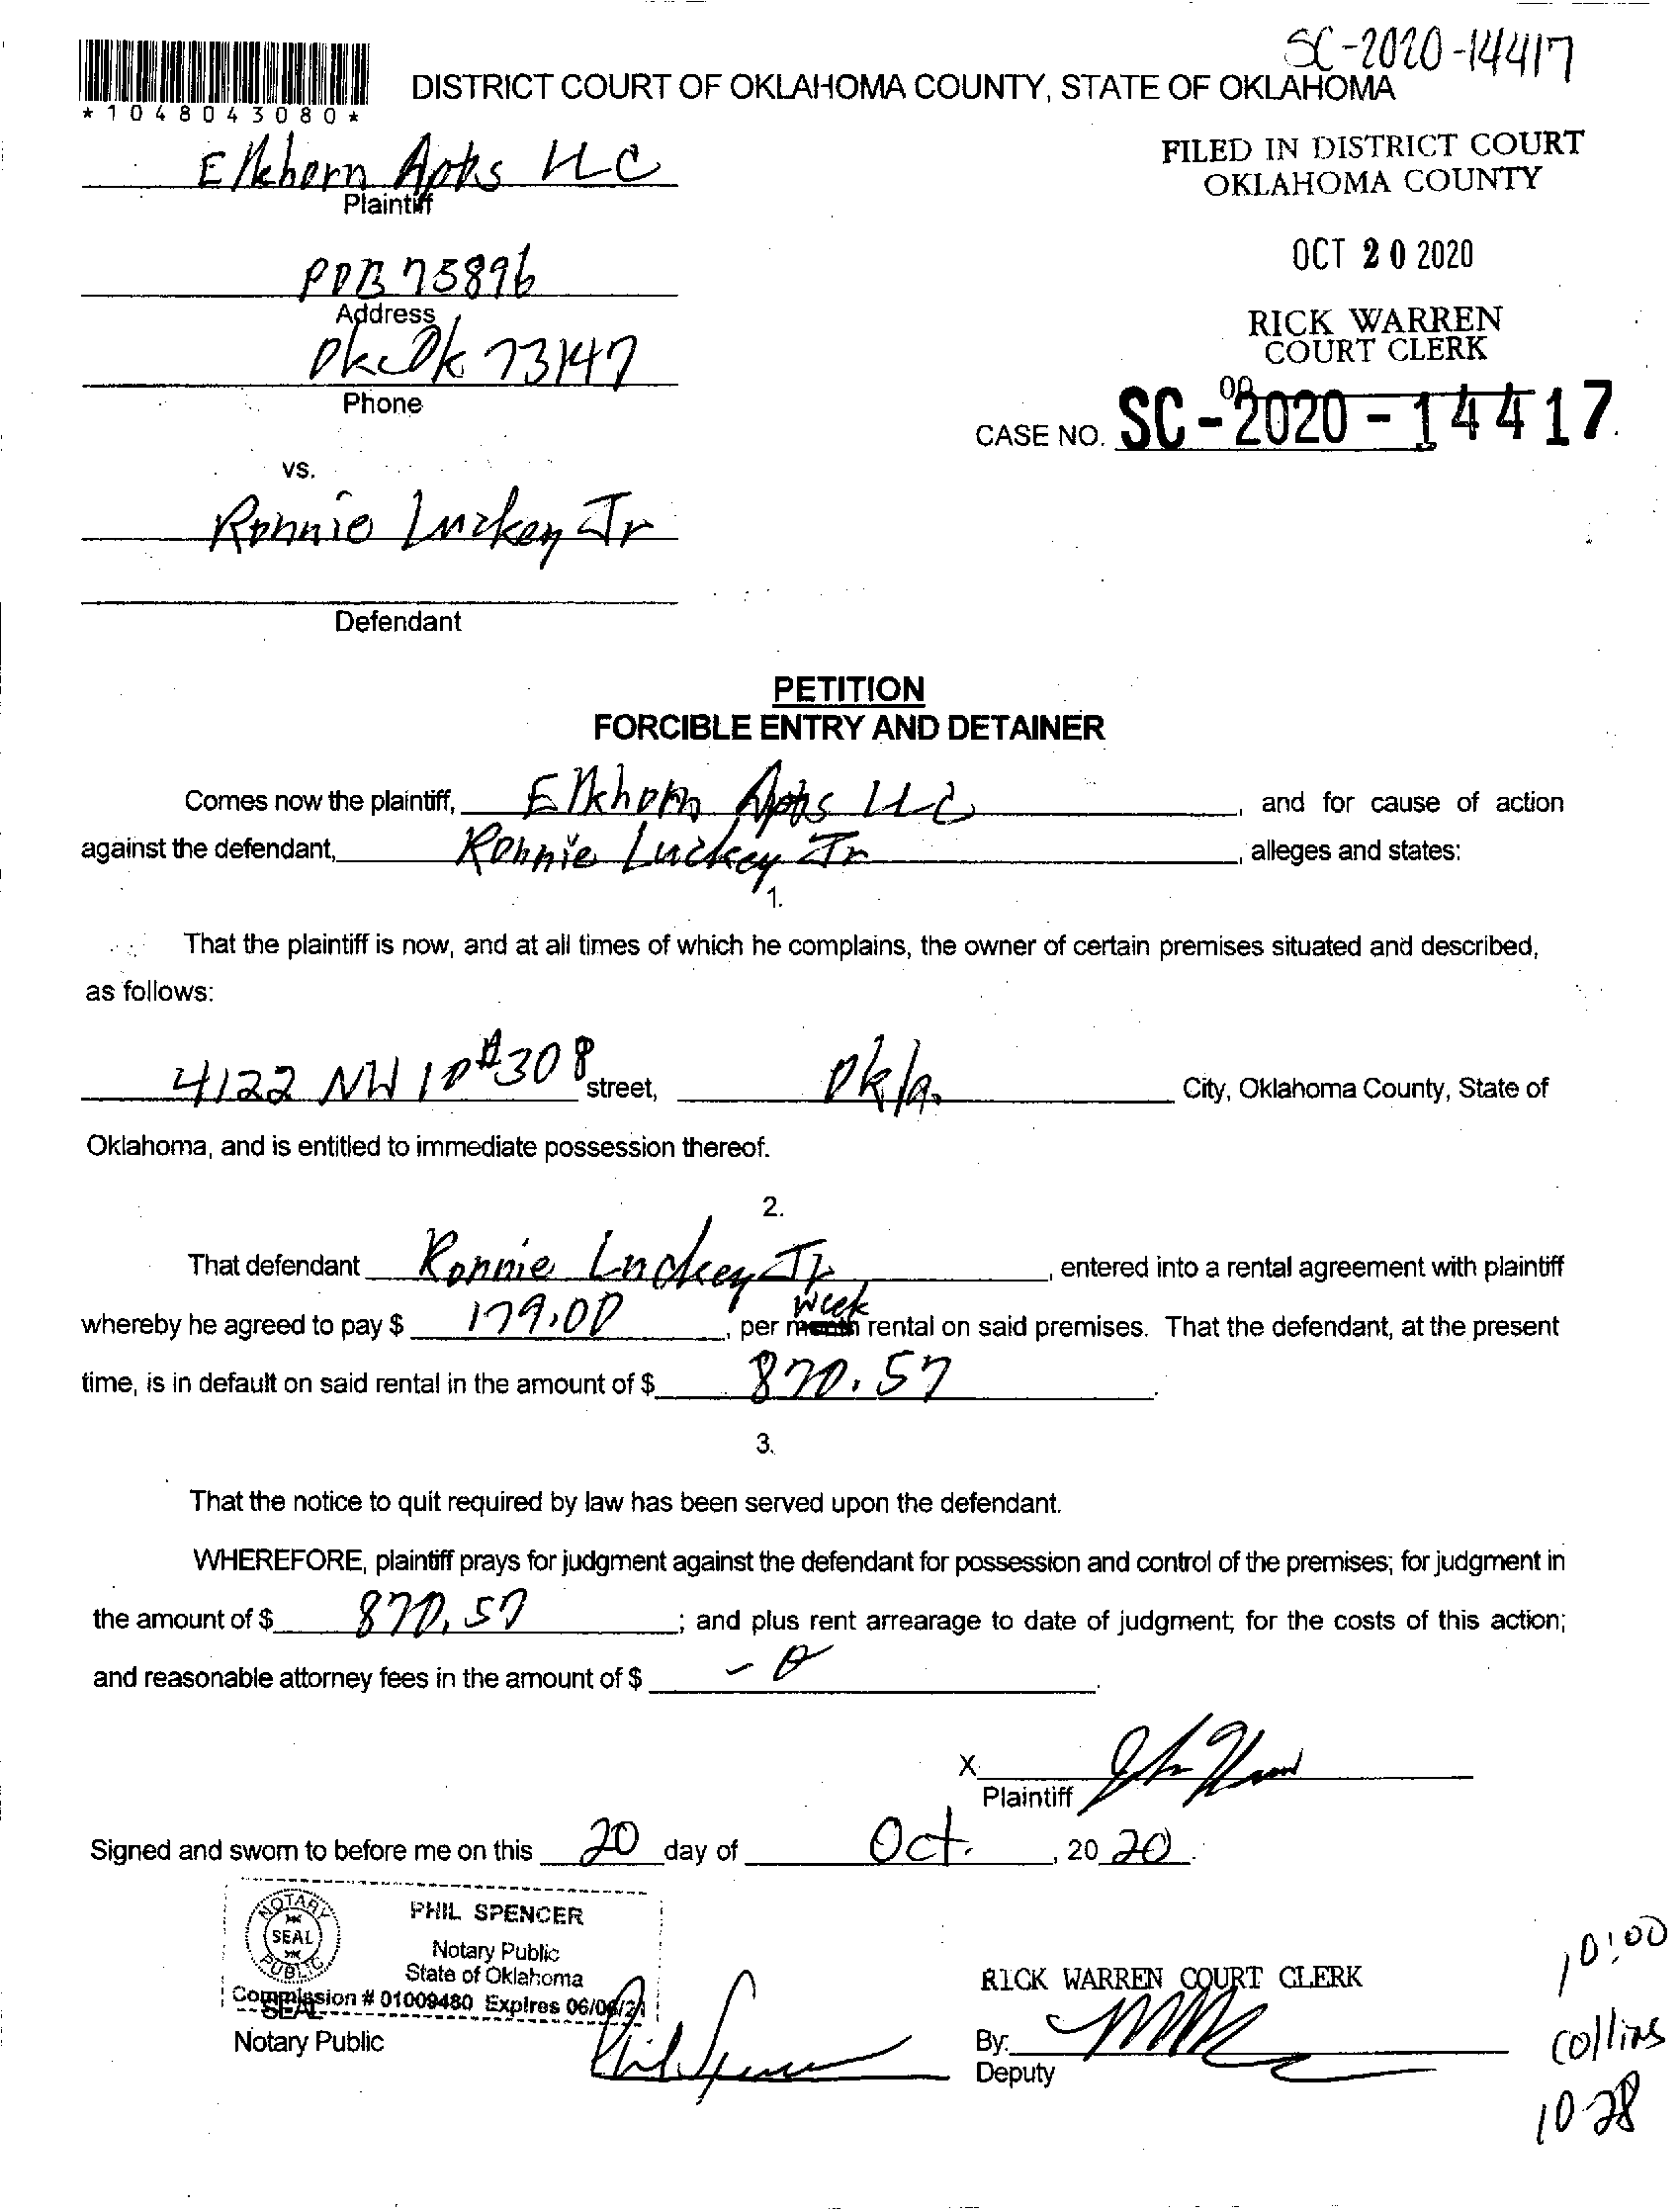 SC-2020-14417
DISTRICT COURT OF OKLAHOMA COUNTY, STATE OF OKLAHOMA
*1048043080*
Elkhorn Apts LLC
Plaintiff
FILED IN DISTRICT COURT
OKLAHOMA COUNTY
POB 75896
Address
OCT 20 2020
Okc Ok 73147
Phone
RICK WARREN
COURT CLERK
CASE NO. SC-2020-14417
vs.
Ronnie Luckey Jr
Defendant
PETITION
FORCIBLE ENTRY AND DETAINER
Comes now the plaintiff, Elkhorn Apts LLC, and for cause of action
against the defendant, Ronnie Luckey Jr, alleges and states:
1.
That the plaintiff is now, and at all times of which he complains, the owner of certain premises situated and described,
as follows:
4122 NW 10 #308 street, Okla. City, Oklahoma County, State of
Oklahoma, and is entitled to immediate possession thereof.
2.
That defendant Ronnie Luckey Jr, entered into a rental agreement with plaintiff
whereby he agreed to pay $ 179.00, per month week rental on said premises. That the defendant, at the present
time, is in default on said rental in the amount of $ 870.57.
3.
That the notice to quit required by law has been served upon the defendant.
WHEREFORE, plaintiff prays for judgment against the defendant for possession and control of the premises; for judgment in
the amount of $ 870.57; and plus rent arrearage to date of judgment; for the costs of this action;
and reasonable attorney fees in the amount of $ -0.
X
Plaintiff
Signed and sworn to before me on this 20 day of Oct., 2020.
NOTARY PUBLIC SEAL
PHIL SPENCER
Notary Public
State of Oklahoma
Commission # 01009480 Expires 06/06/21
SEAL
Notary Public
Phil Spencer
RICK WARREN COURT CLERK
By:
Deputy
10:00
Collins
10-28